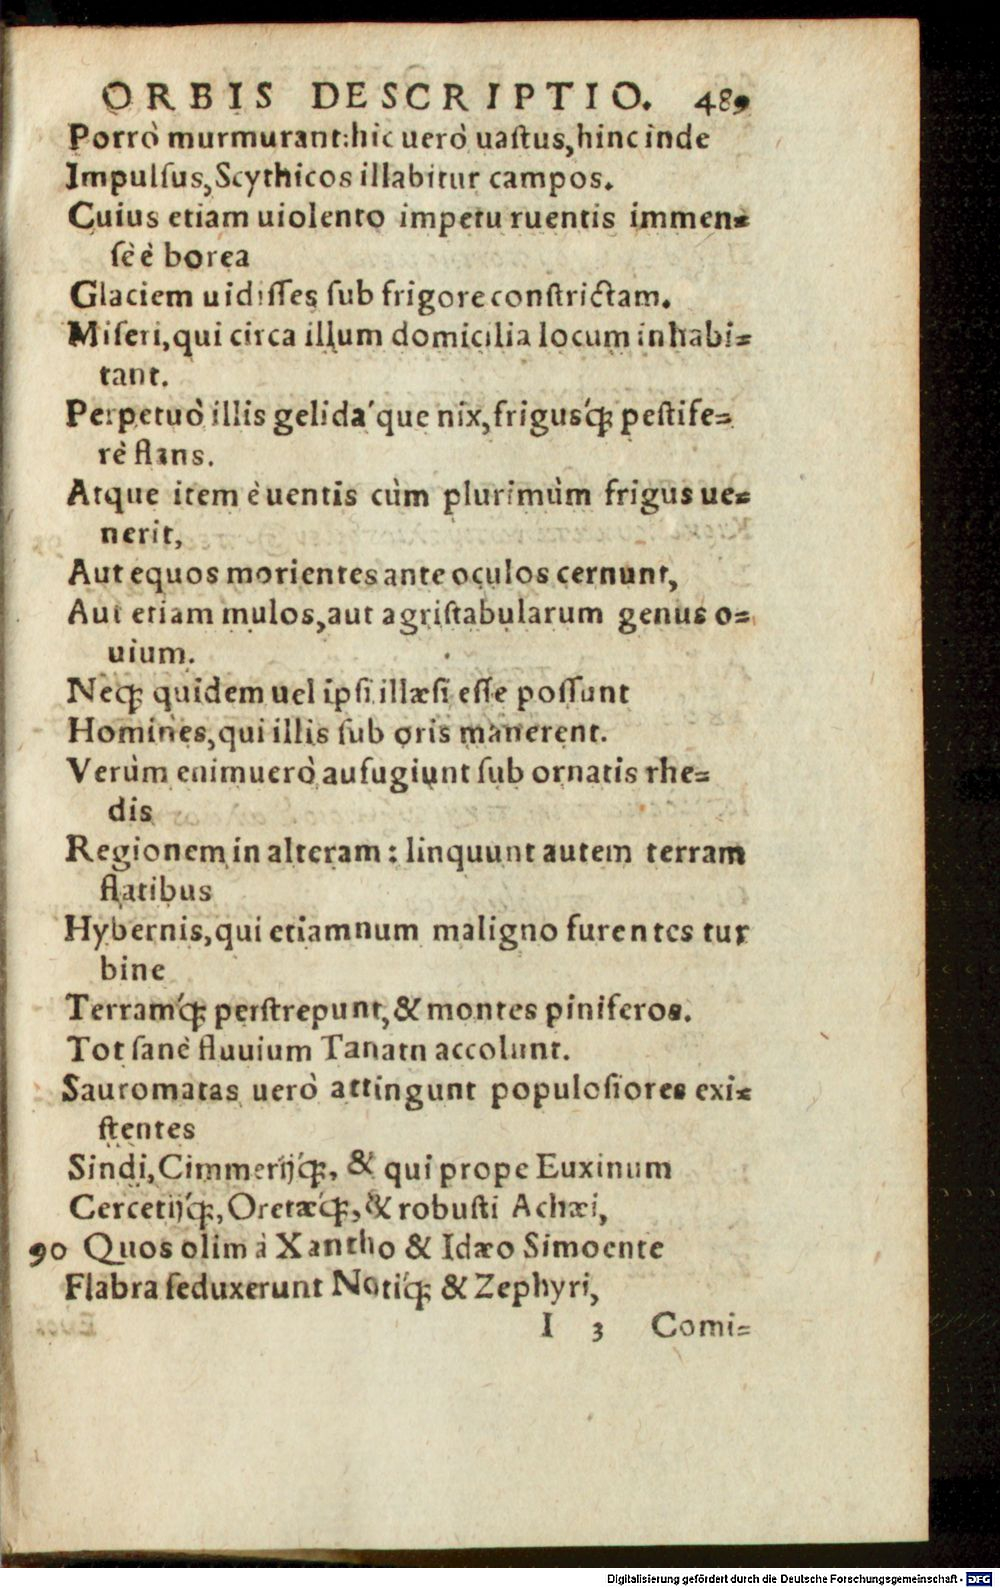 ORBIS DESCRIPTIO. 489
Porrò murmurant:hic uerò uaſtus,hinc inde
Impulſus,Scythicos illabitur campos.
Cuius etiam uiolento impetu ruentis immen-
ſè è borea
Glaciem uidiſſes ſub frigore conſtrictam.
Miſeri,qui circa illum domicilia locum inhabi-
tant.
Perpetuò illis gelida´que nix,frigus´q; peſtife-
rè flans.
Atque item è uentis cùm plurimùm frigus ue-
nerit,
Aut equos morientes ante oculos cernunt,
Aut etiam mulos,aut agriſtabularum genus o-
uium.
Neq; quidem uel ipſi illæſi eſſe poſſunt
Homines,qui illis ſub oris manerent.
Verùm enimuerò aufugiunt ſub ornatis rhe-
dis
Regionem in alteram: linquunt autem terram
flatibus
Hybernis,qui etiamnum maligno furentes tur
bine
Terram´q; perſtrepunt,& montes piniferos.
Tot ſanè fluuium Tanain accolunt.
Sauromatas uerò attingunt populoſiores exi-
ſtentes
Sindi,Cimmerij´q;, & qui prope Euxinum
Cercetij´q;,Oretæ´q;,& robuſti Achæi,
90 Quos olim à Xantho & Idæo Simoente
Flabra ſeduxerunt Noti´q; & Zephyri,
I 3 Comi-
Digitalisierung gefördert durch die Deutsche Forschungsgemeinschaft - DFG